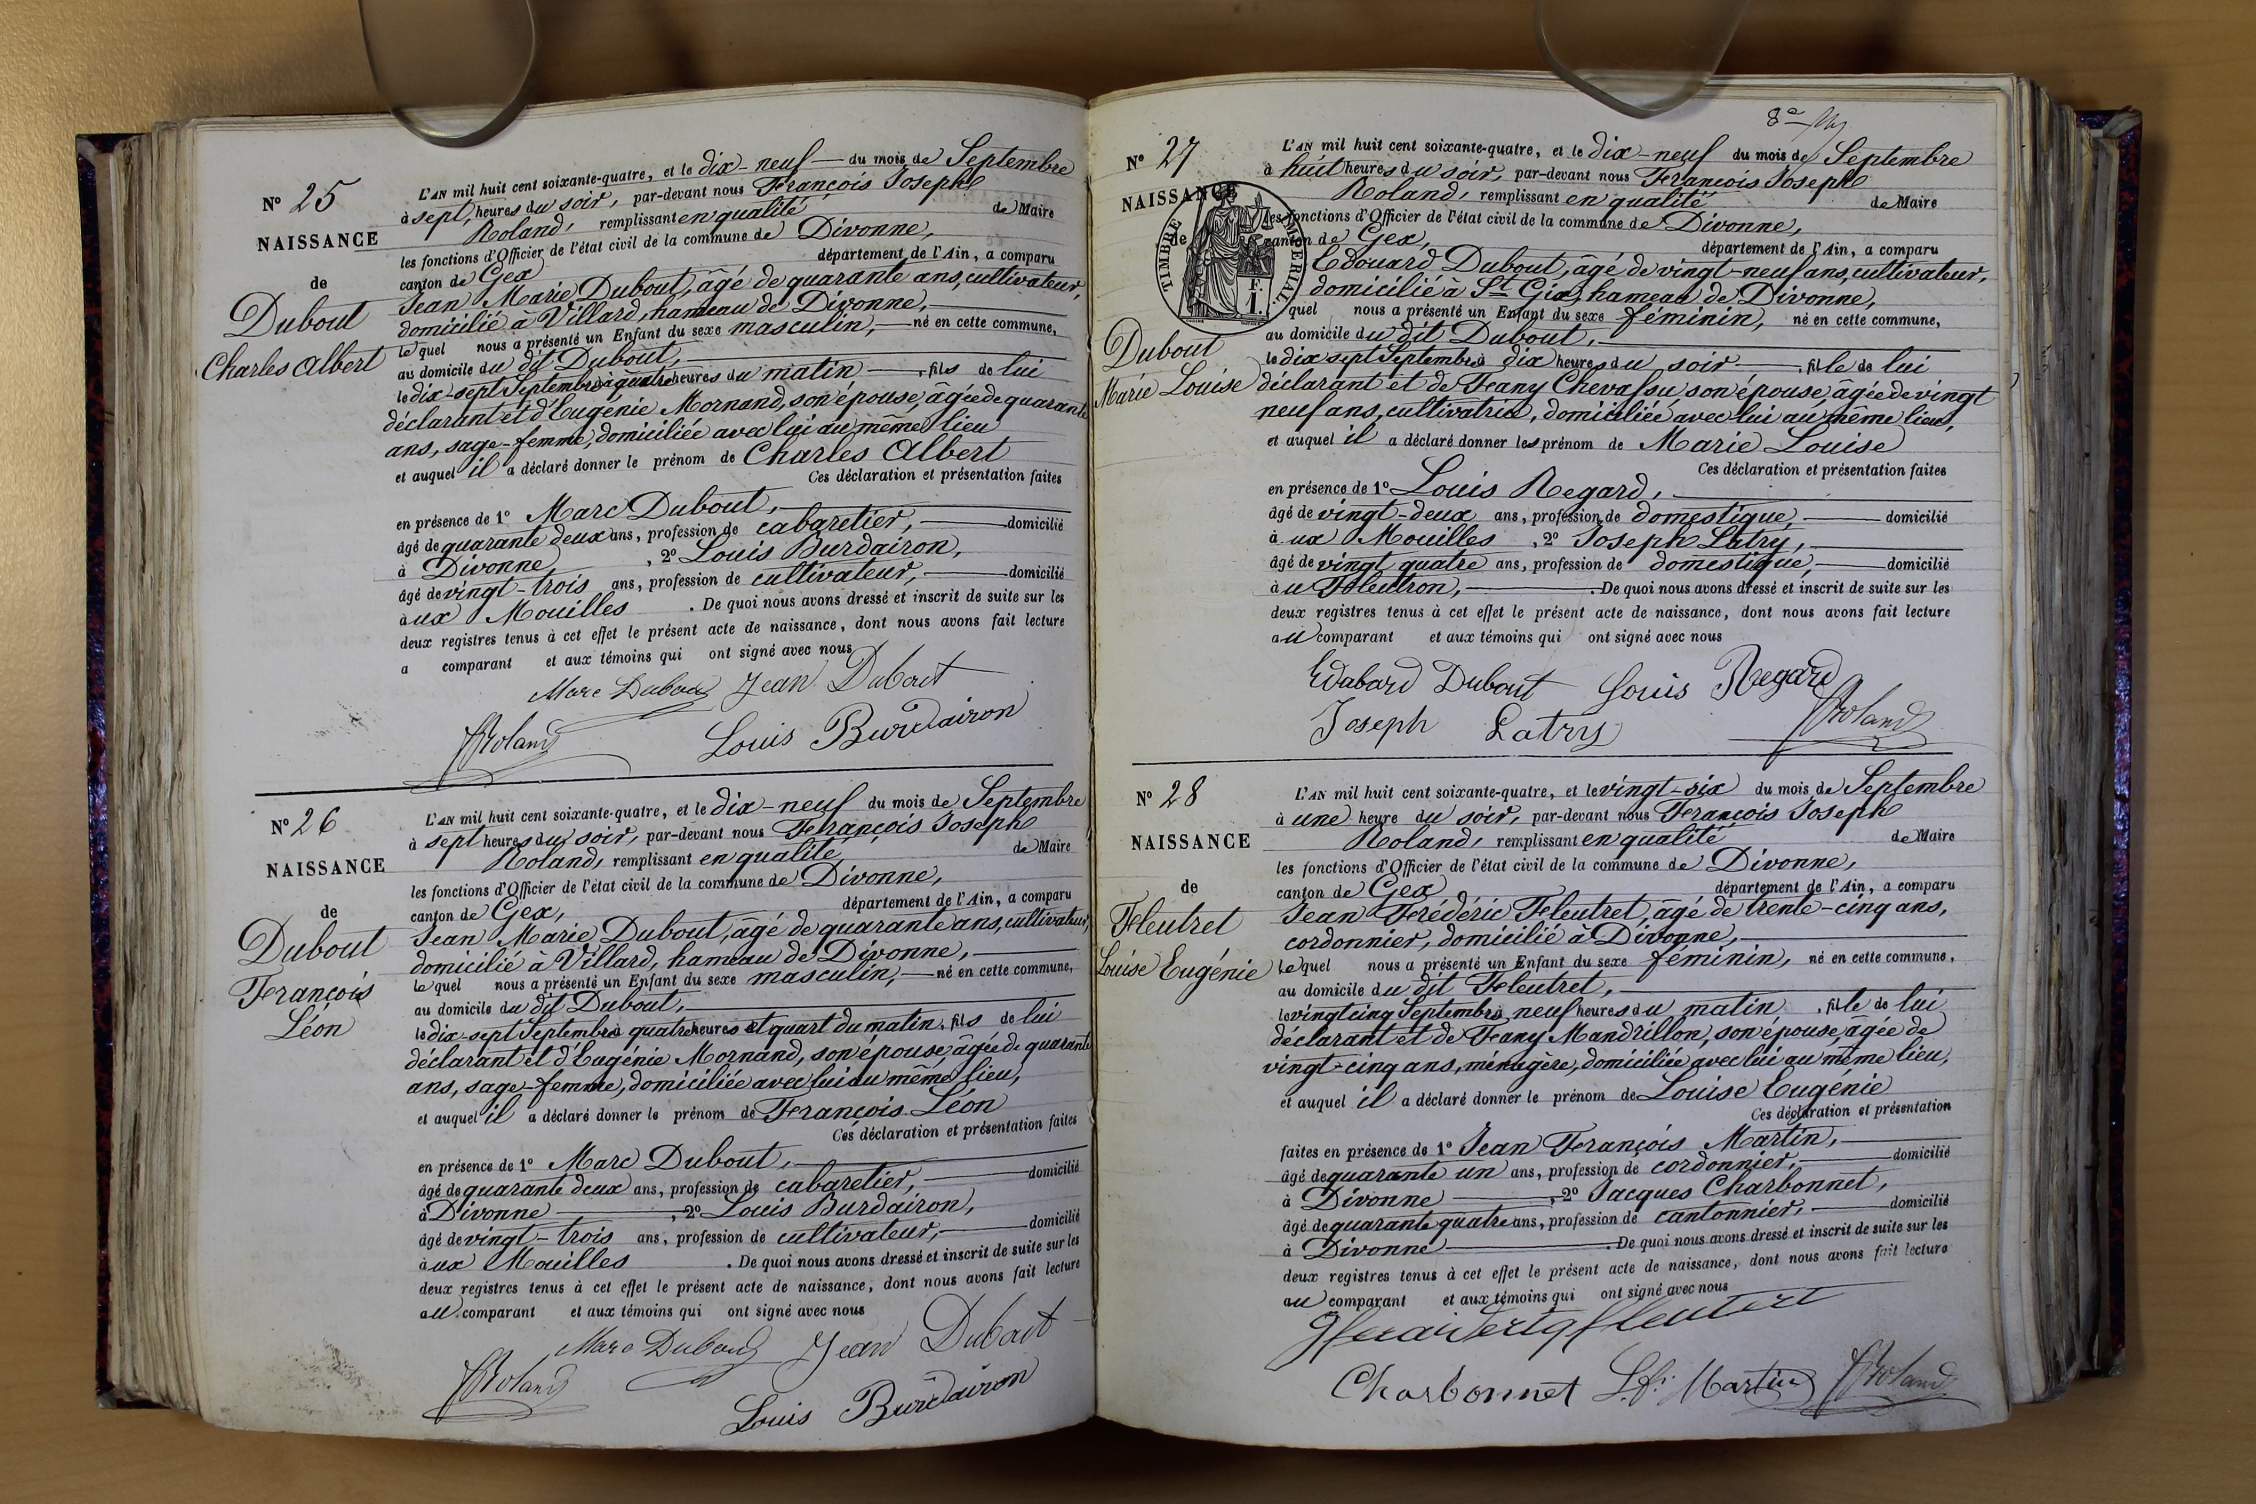 N° 25
NAISSANCE
de
Dubout
Charles Albert
L'AN mil huit cent soixante-quatre, et le dix-neuf du mois de Septembre
à sept heures du soir, par-devant nous François Joseph
Roland, remplissant en qualité de Maire
les fonctions d'Officier de l'état civil de la commune de Divonne,
canton de Gex département de l'Ain, a comparu
Jean Marie Dubout, âgé de quarante ans, cultivateur,
domicilié à Villard, hameau de Divonne,
lequel nous a présenté un Enfant du sexe masculin, né en cette commune,
au domicile du dit Dubout,
le dix-sept Septembre à quatre heures du matin, fils de lui
déclarant et d'Eugénie Mornand, son épouse, âgée de quarante
ans, sage-femme, domiciliée avec lui au même lieu
et auquel il a déclaré donner le prénom de Charles Albert
Ces déclaration et présentation faites
en présence de 1° Marc Dubout,
âgé de quarante deux ans, profession de cabaretier, domicilié
à Divonne, 2° Louis Burdairon,
âgé de vingt-trois ans, profession de cultivateur, domicilié
à ux Mouilles. De quoi nous avons dressé et inscrit de suite sur les
deux registres tenus à cet effet le présent acte de naissance, dont nous avons fait lecture
a comparant et aux témoins qui ont signé avec nous
Marc Dubout Jean Dubout
JfRoland Louis Burdairon
N° 26
NAISSANCE
de
Dubout
François
Léon
L'AN mil huit cent soixante-quatre, et le dix-neuf du mois de Septembre
à sept heures du soir, par-devant nous François Joseph
Roland, remplissant en qualité de Maire
les fonctions d'Officier de l'état civil de la commune de Divonne,
canton de Gex, département de l'Ain, a comparu
Jean Marie Dubout, âgé de quarante ans, cultivateur,
domicilié à Villard, hameau de Divonne,
lequel nous a présenté un Enfant du sexe masculin, né en cette commune,
au domicile du dit Dubout,
le dix-sept Septembre à quatre heures et quart du matin, fils de lui
déclarant et d'Eugénie Mornand, son épouse, âgée de quarante
ans, sage-femme, domiciliée avec lui au même lieu,
et auquel il a déclaré donner le prénom de François Léon
Ces déclaration et présentation faites
en présence de 1° Marc Dubout,
âgé de quarante deux ans, profession de cabaretier, domicilié
à Divonne, 2° Louis Burdairon,
âgé de vingt-trois ans, profession de cultivateur, domicilié
à ux Mouilles. De quoi nous avons dressé et inscrit de suite sur les
deux registres tenus à cet effet le présent acte de naissance, dont nous avons fait lecture
au comparant et aux témoins qui ont signé avec nous
Marc Dubout Jean Dubout
JfRoland Louis Burdairon
8e
N° 27
NAISSANCE
de
TIMBRE IMPERIAL.
1 F.
Dubout
Marie Louise
L'AN mil huit cent soixante-quatre, et le dix-neuf du mois de Septembre
à huit heures du soir, par-devant nous François Joseph
Roland, remplissant en qualité de Maire
les fonctions d'Officier de l'état civil de la commune de Divonne,
canton de Gex, département de l'Ain, a comparu
Edouard Dubout, âgé de vingt-neuf ans, cultivateur,
domicilié à St Gix, hameau de Divonne,
quel nous a présenté un Enfant du sexe féminin, né en cette commune,
au domicile du dit Dubout,
le dix sept Septembre à dix heures du soir, fille de lui
déclarant et de Fany Chevassu, son épouse, âgée de vingt
neuf ans, cultivatrice, domiciliée avec lui au même lieu,
et auquel il a déclaré donner les prénom de Marie Louise
Ces déclaration et présentation faites
en présence de 1° Louis Regard,
âgé de vingt-deux ans, profession de domestique, domicilié
à ux Mouilles, 2° Joseph Latry,
âgé de vingt quatre ans, profession de domestique, domicilié
à u Fleutron,. De quoi nous avons dressé et inscrit de suite sur les
deux registres tenus à cet effet le présent acte de naissance, dont nous avons fait lecture
au comparant et aux témoins qui ont signé avec nous
Edabard Dubout Louis Regard
Joseph Latry JfRoland
N° 28
NAISSANCE
de
Fleutret
Louise Eugénie
L'AN mil huit cent soixante-quatre, et le vingt-six du mois de Septembre
à une heure du soir, par-devant nous François Joseph
Roland, remplissant en qualité de Maire
les fonctions d'Officier de l'état civil de la commune de Divonne,
canton de Gex département de l'Ain, a comparu
Jean Frédéric Fleutret, âgé de trente-cinq ans,
cordonnier, domicilié à Divonne,
lequel nous a présenté un Enfant du sexe féminin, né en cette commune,
au domicile du dit Fleutret,
le vingt cinq Septembre à neuf heures du matin, fille de lui
déclarant et de Fany Mandrillon, son épouse, âgée de
vingt-cinq ans, ménagère, domiciliée avec lui au même lieu,
et auquel il a déclaré donner le prénom de Louise Eugénie
Ces déclaration et présentation
faites en présence de 1° Jean François Martin,
âgé de quarante un ans, profession de cordonnier, domicilié
à Divonne, 2° Jacques Charbonnet,
âgé de quarante quatre ans, profession de cantonnier, domicilié
à Divonne. De quoi nous avons dressé et inscrit de suite sur les
deux registres tenus à cet effet le présent acte de naissance, dont nous avons fait lecture
au comparant et aux témoins qui ont signé avec nous
Charbonnet J. fs Martin JfRoland